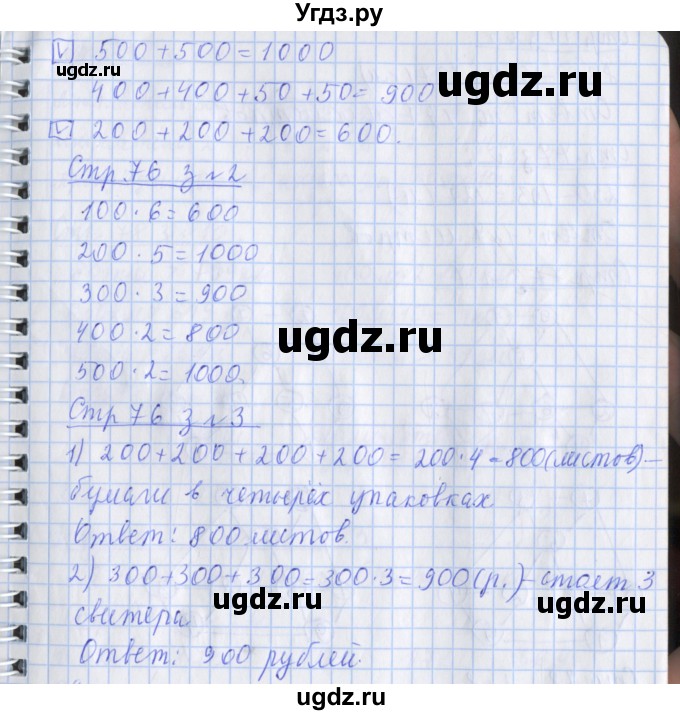 Угдз.ру
500 + 500 = 1000
ugdz.ru
ugdz.ru
400 + 400 + 50 + 50 = 900
200 + 200 + 200 = 600.
Стр 76 з №2
100 · 6 = 600
200 · 5 = 1000
300 · 3 = 900
ugdz.ru
400 · 2 = 800
500 · 2 = 1000.
Стр 76 з №3
1) 200 + 200 + 200 + 200 = 200 · 4 = 800 (листов) —
бумаги в четырёх упаковках.
Ответ: 800 листов.
ugdz.ru
2) 300 + 300 + 300 = 300 · 3 = 900 (р.) - стоят 3
ugdz.ru
свитера
ugdz.ru
Ответ: 900 рублей.
ugdz.ru